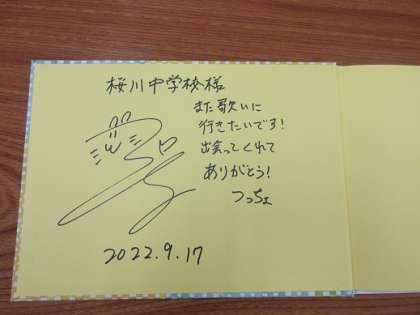 桜川中学校様
また歌いに
行きたいです!
出会ってくれて
ありがとう!
つっちょ
2022.9.17